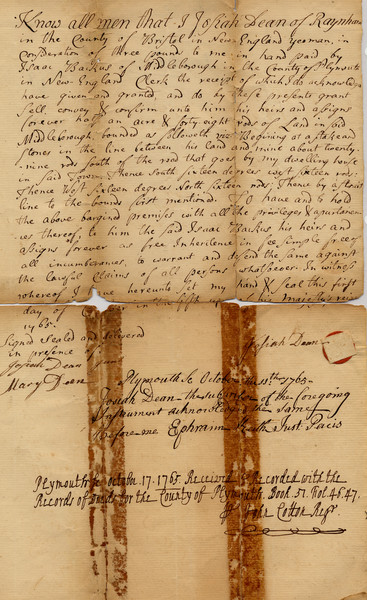 Know all men that I Josiah Dean of Raynham
in the County of Bristol in New England yeoman, in
Consideration of three pounds to me in hand paid by
Isaac Backus of Middleborough in the County of Plymouth
in New-England Clerk the receipt of which I do acknowledge
have given and granted, and do by these present grant
Sell, convey & confirm unto him his heirs and assigns
forever half an acre & forty eight rods of Land in said
Middleborough, bounded as followeth viz Begining at a stake and
stones in the line between his land and mine about twenty-
nine rods south of the rod that goes by my dwelling house
in said Town, Thence South sixteen degrees west sixteen rods;
Thence West sixteen degrees North sixteen rods; Thence by a strait
line to the bounds first mentioned. To have and to hold
the above bargind premises with all the privileges & apurtenan-
ces thereof, to him the said Isaac Backus his heirs and
asigns forever as free Inheritence in fee simple free of
all incumbrances, to warrant and defend the same against
the lawful Claims of all persons whatsoever. In witness
whereof I have hereunto set my hand & seal this first
day of in the fifth his majesty's
1765.
Signed Sealed and delivered
in presence of
Josiah Dean
Josiah Dean
Mary Dean
Plymouth Sc October 11th 1765.
Josiah Dean the subscriber of the foregoing
Instrument acknowledged the same
Before me Ephraim Keith Just Pacis
Plymouth Sc october 17. 1765. Received & Recorded with the
Records of Deeds for the County of Plymouth Book. 51. Fol. 46.47.
John Cotton Regr.